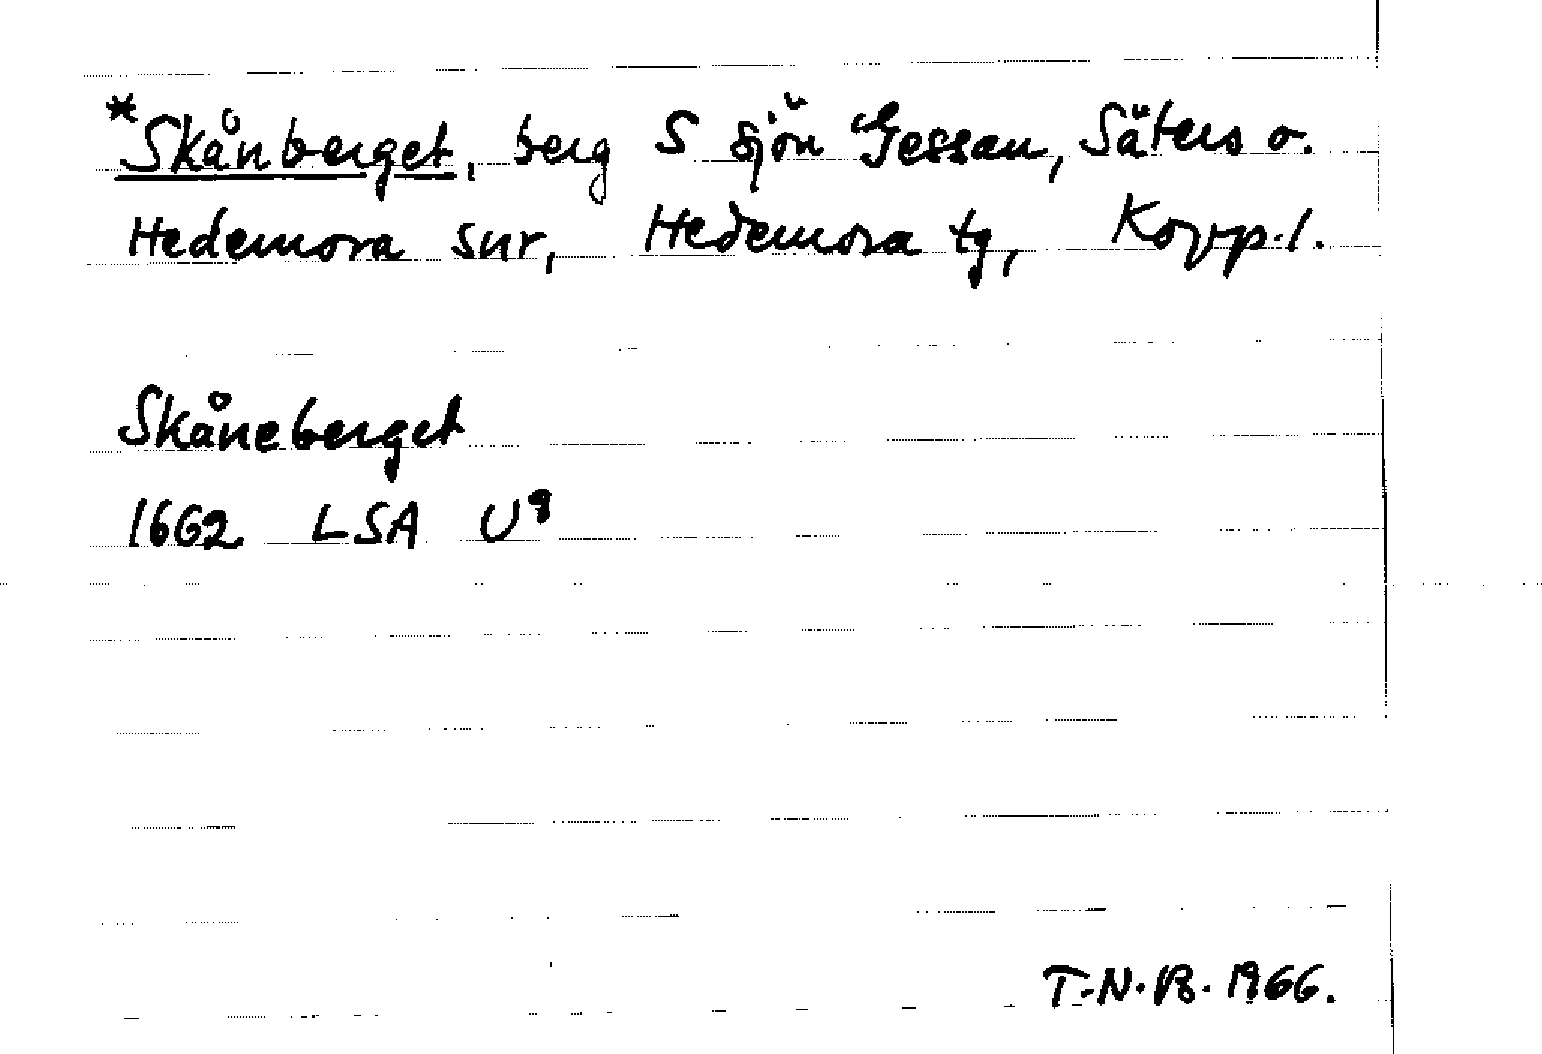 *Skånberget, berg S sjön Gessan, Säters o.
Hedemora snr, Hedemora tg, Kopp.l.
Skåneberget
1662 LSA U⁹
T.N.B. 1966.